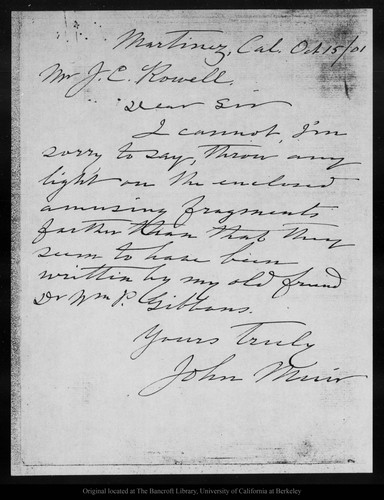 Martinez, Cal. Oct 15/01
Mr J. C. Rowell,
Dear Sir
I cannot, I'm
sorry to say, throw any
light on the enclosed
amusing fragments
farther than that they
seem to have been
written by my old friend
Dr Wm P. Gibbons.
Yours truly
John Muir
Original located at The Bancroft Library, University of California at Berkeley